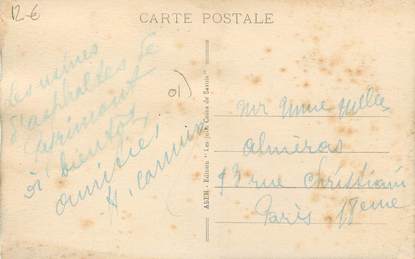 12 €
CARTE POSTALE
01)
Les mines
d'asphaltes de
à bientôt
amitiés
ASER - Edition "Les jolis Coins de Savoie"
Mr Mme Melle
Almeras
13 rue Christiani
Paris 18eme